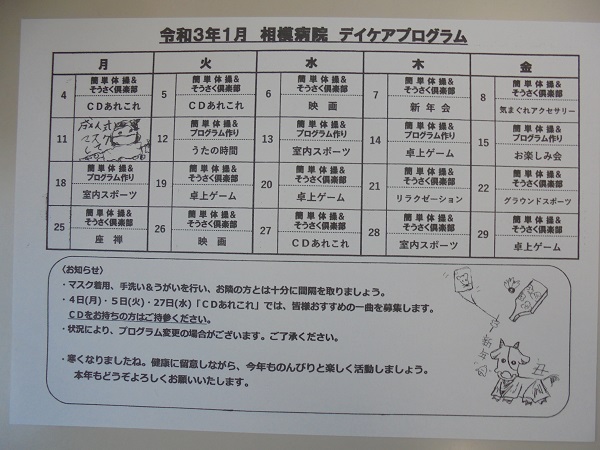 令和3年1月 相模病院 デイケアプログラム
月 火 水 木 金
4 簡単体操&そうさく倶楽部 CDあれこれ
5 簡単体操&そうさく倶楽部 CDあれこれ
6 簡単体操&そうさく倶楽部 映画
7 簡単体操&そうさく倶楽部 新年会
8 簡単体操&そうさく倶楽部 気まぐれアクセサリー
11 成人式 マスクして
12 簡単体操&プログラム作り うたの時間
13 簡単体操&プログラム作り 室内スポーツ
14 簡単体操&プログラム作り 卓上ゲーム
15 簡単体操&プログラム作り お楽しみ会
18 簡単体操&プログラム作り 室内スポーツ
19 簡単体操&そうさく倶楽部 卓上ゲーム
20 簡単体操&そうさく倶楽部 卓上ゲーム
21 簡単体操&そうさく倶楽部 リラクゼーション
22 簡単体操&そうさく倶楽部 グラウンドスポーツ
25 簡単体操&そうさく倶楽部 座禅
26 簡単体操&そうさく倶楽部 映画
27 簡単体操&そうさく倶楽部 CDあれこれ
28 簡単体操&そうさく倶楽部 室内スポーツ
29 簡単体操&そうさく倶楽部 卓上ゲーム
〈お知らせ〉
・マスク着用、手洗い&うがいを行い、お隣の方とは十分に間隔を取りましょう。
・4日(月)・5日(火)・27日(水)「CDあれこれ」では、皆様おすすめの一曲を募集します。
CDをお持ちの方はご持参ください。
・状況により、プログラム変更の場合がございます。ご了承ください。
・寒くなりましたね。健康に留意しながら、今年ものんびりと楽しく活動しましょう。
本年もどうぞよろしくお願いいたします。
新年会
丑